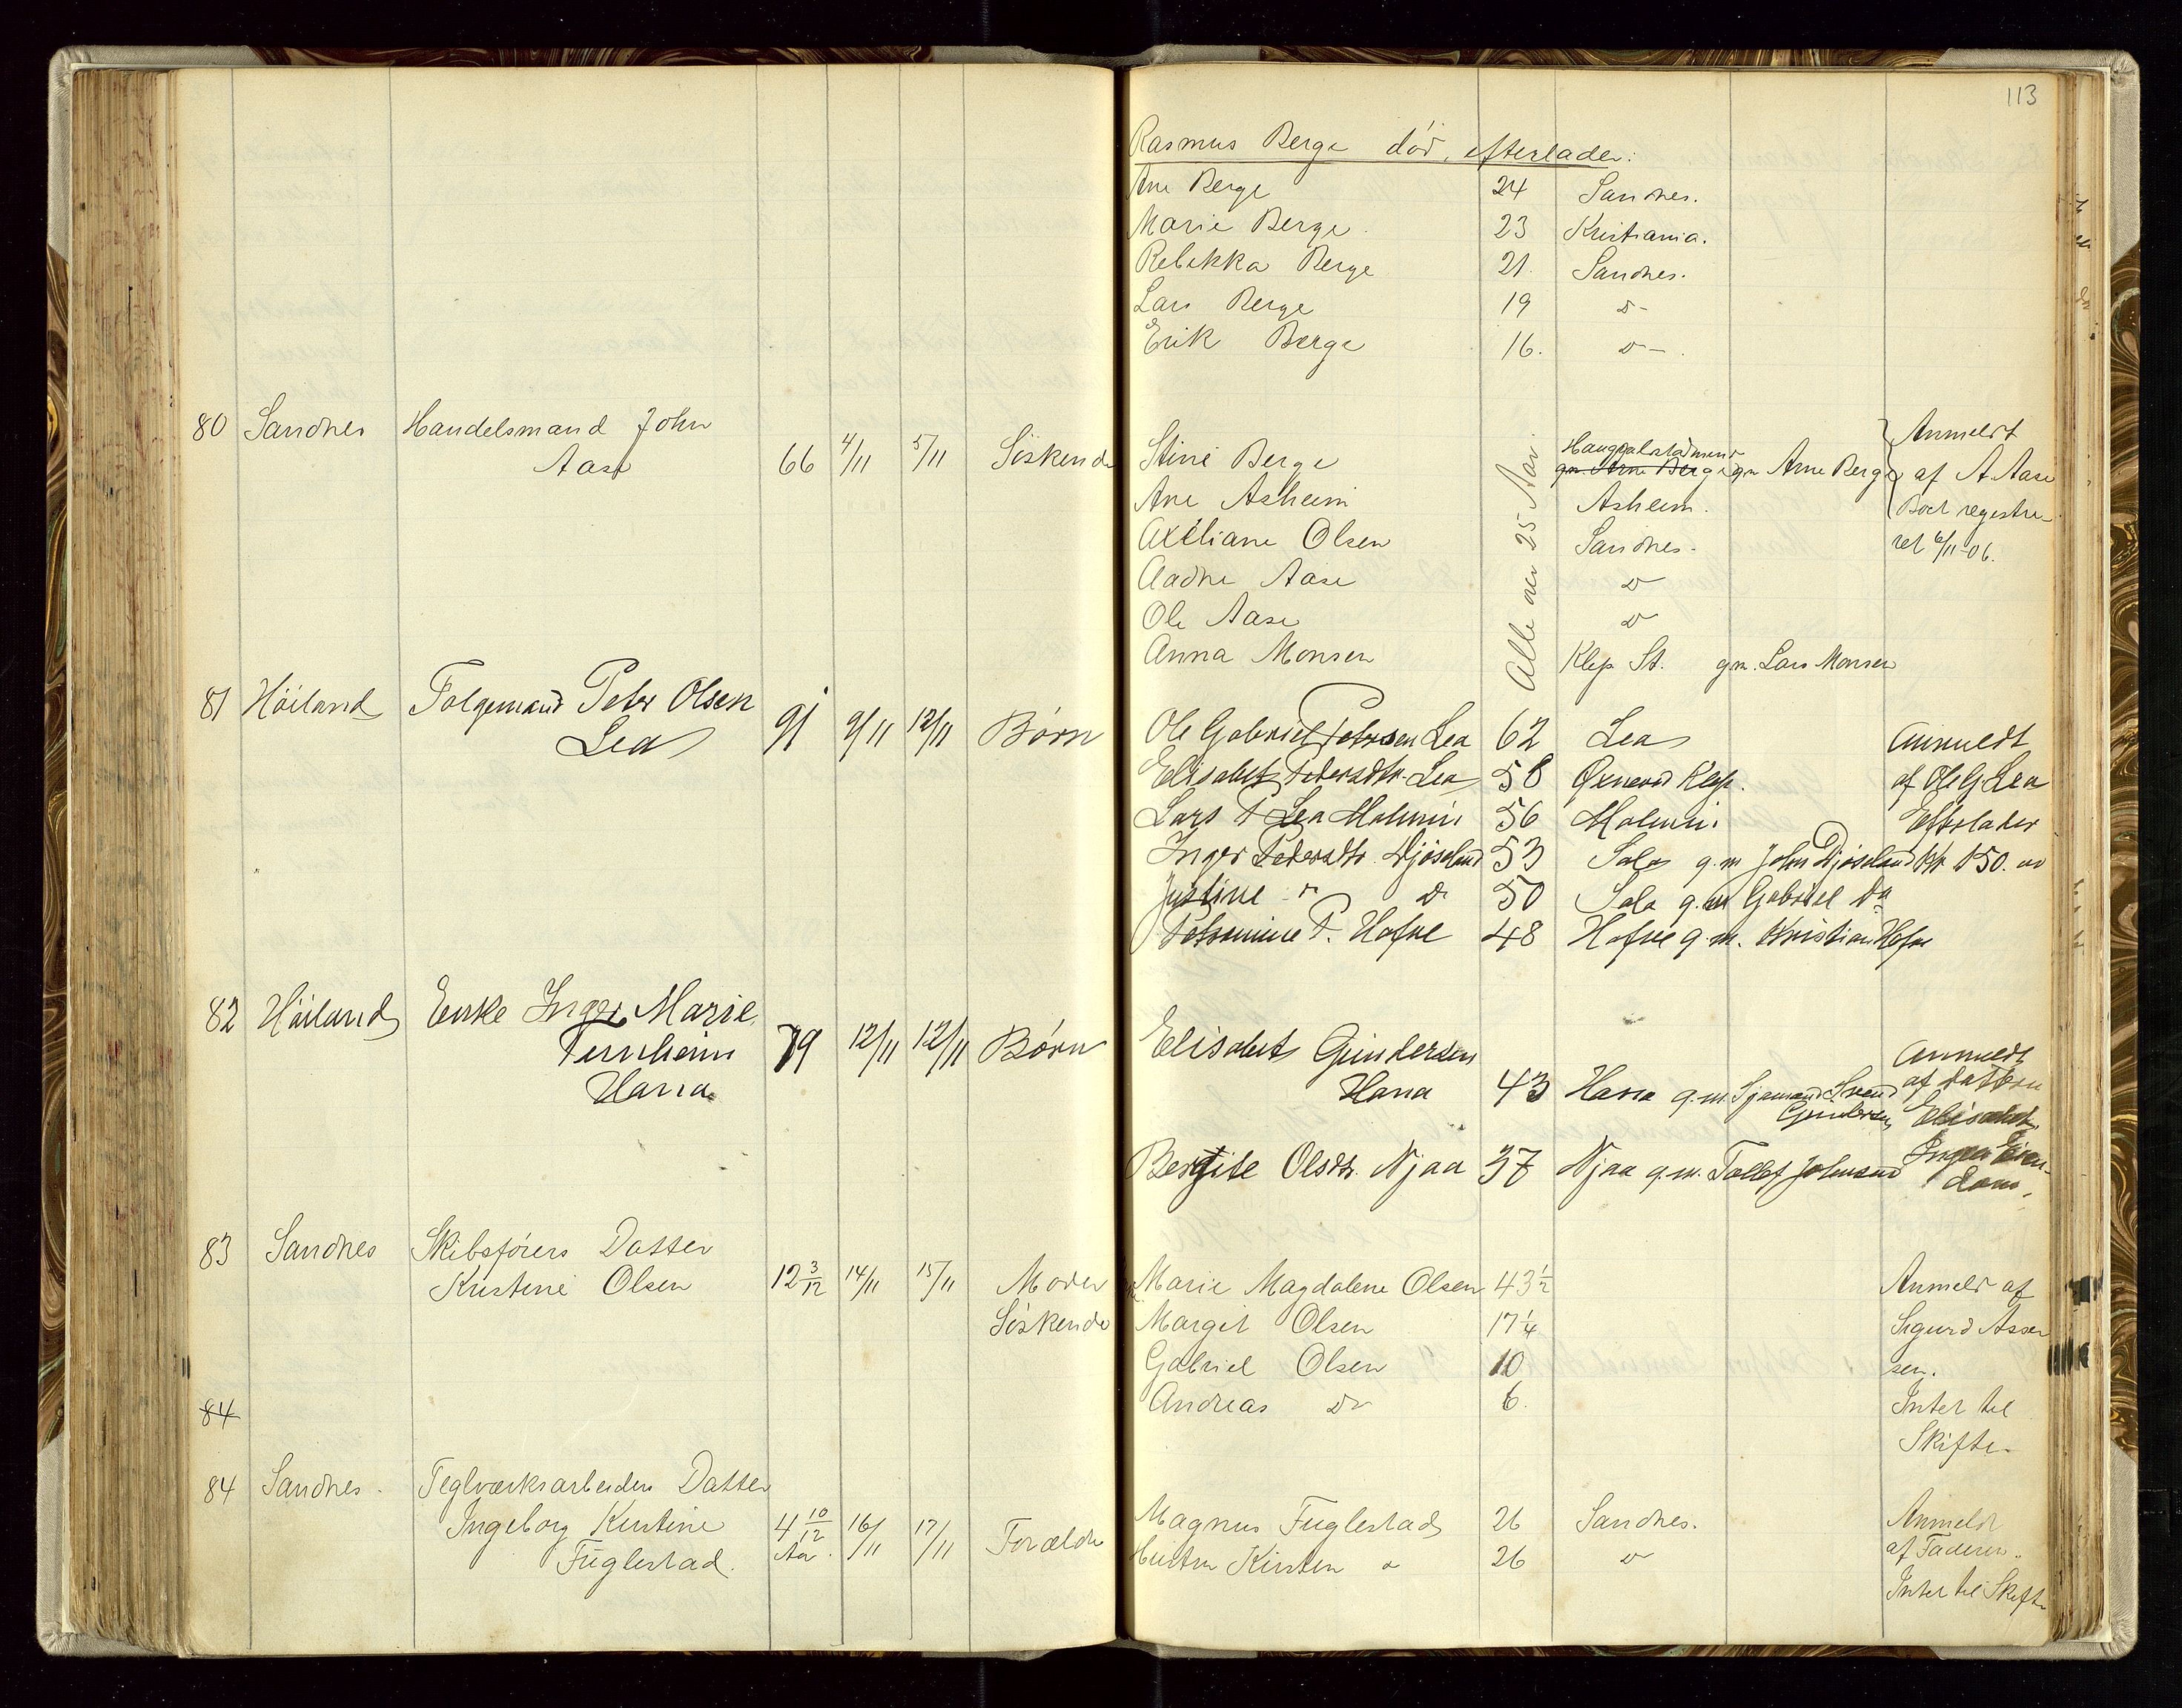 113
Rasmus Berge död, efterlader:
Ane Berge 24 Sandnes.
Marie Berge. 23 Kristiania.
Rebekka Berge 21. Sandnes.
Lars Berge 19 D-
Erik Berge 16. D-.
80 Sandnes Handelsmand John
Aase 66 4/11 5/11 Söskende
Stine Berge gm Arne Berge gm Arne Berge
Ane Asheim Asheim.
Axeliane Olsen Sandnes.
Aadne Aase D
Ole Aase D
Anna Monsen Klep St. gm. Lars Monsen
Alle over 25 Aar
Anmeldt
af A. Aase
Boet registre-
ret 6/11-06.
81 Höiland Folgemand Peter Olsen
Lea 91 9/11 12/11 Börn
Ole Gabriel Petersen Lea 62 Lea
Elisabet Petersdtr. Lea 58 Öxnevad Klep.
Lars P Lea Malmin 56 Malmin
Inger Petersdtr. Njöseland 53 Sola g.m John Njöseland
Justine " D 50 Sola g.m Gabriel Do
P. Hafne 48 Hafne g.m. Kristian Hafne
Anmeldt
af Ole G. Lea
Efterlader
Kr 150.00
82 Höiland Enke Inger Marie
Hana 79 12/11 12/11 Börn
Elisabet Gundersen
Hana 43 Hana g.m. Sjömand Svend
Gundersen
Bergite Olsdtr. Njaa 37 Njaa g.m. Tollef Johnsend
Anmeldt
af Datteren
Elisabet.
Ingen Eien-
dom.
83 Sandnes Skibsförers Datter
Kristine Olsen 12 3/12 14/11 15/11 Moder
Söskende
Marie Magdalene Olsen 43 1/2
Margit Olsen 17 1/4
Gabriel Olsen 10
Andreas Do 6.
Anmeld af
Sigurd Asser
sen.
Intet til
Skifte.
84
84 Sandnes. Teglværksarbeiders Datter
Ingeborg Kirstine
Fuglestad. 4 10/12 Aar. 16/11 17/11 Forældre
Magnus Fuglestad 26 Sandnes.
Hustru Kirsten D 26 D
Anmeldt
af Faderen.
Intet til Skifte